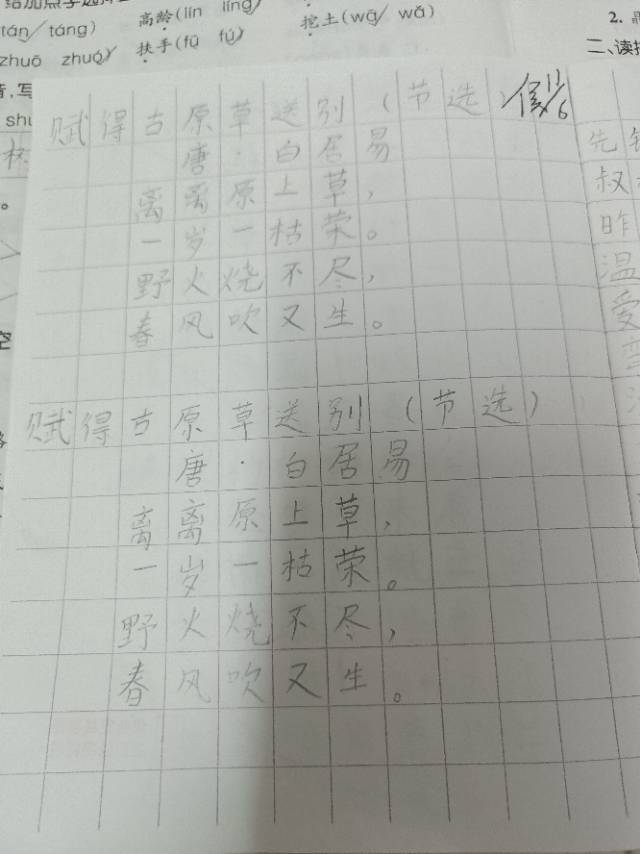 高龄(lín líng)
挖土(wā wǎ)
tán táng)
扶手(fū fú)
zhuō zhuó)
2.
二、读
赋得古原草送别(节选)
唐·白居易
离离原上草,
一岁一枯荣。
野火烧不尽,
春风吹又生。
赋得古原草送别(节选)
唐·白居易
离离原上草,
一岁一枯荣。
野火烧不尽,
春风吹又生。
先
叔
昨
温
爱